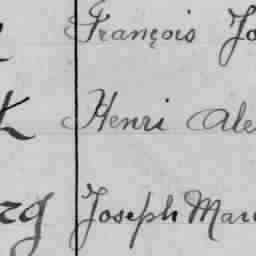 François Jo
K Henri Ale
rg Joseph Mar